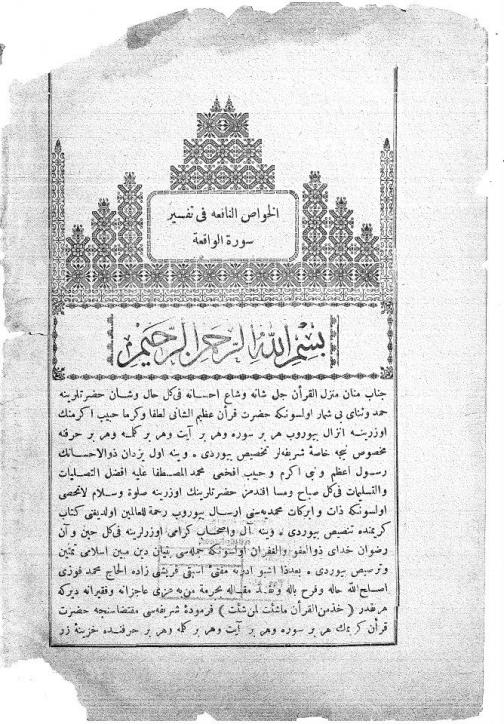 الخواص النافعه فى تفسير
سورة الواقعة
بسم الله الرحمن الرحيم
جناب منان منزل القرأن جل شانه وشاع احسانه فى كل حال وشان حضرتلرينه
حمد وثناى بى شمار اولسونكه حضرت قرأن عظيم الشانى لطفا وكرما حبيب اكرمنك
اوزرينه انزال بيوروب هر بر سوره وهر بر آيت وهر بر كلمه وهر بر حرفنه
مخصوص نيجه خاصهٔ شريفه‌لر تخصيص بيوردى . وينه اول يزدان ذوالاحسانك
رسول اعظم و نبى اكرم و حبيب افخمى محمد المصطفا عليه افضل التصليات
والتسليمات فى كل صباح ومسا افندمز حضرتلرينك اوزرينه صلوة وسلام لاتحصى
اولسونكه ذات و ابركات محمديه‌سنى ارسال بيوروب رحمة للعالمين اولديغنى كتاب
كريمنده تنصيص بيوردى . وينه آل واصحاب كرامى اوزرلرينه فى كل حين وآن
رضوان خداى ذوالعفو والغفران اولسونكه جمله‌سى بنيان دين مبين اسلامى تمتين
وترصيص بيوردى . بعدذا اشبو ادرنه مفتئ اسبقى قريشى زاده الحاج محمد فوزى
اصلح الله حاله وفرح باله مقاله محرمهٔ عاجزانه وفقيرانه ديركه
هرنقدر ( خذ من القرأن ماشئت لمن شئت ) فرمودهٔ شريفه‌سى مقتضاسنجه حضرت
قرأن كريمك هر بر سوره وهر بر آيت وهر بر كلمه وهر بر حرفنده خزينهٔ زر